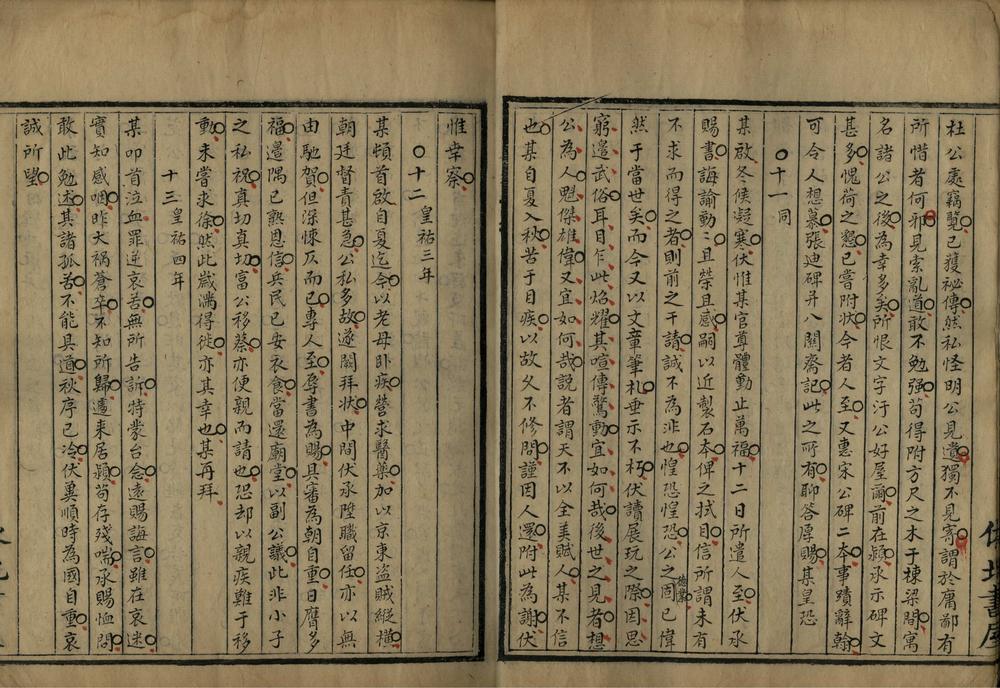 杜公處竊覽已獲祕傳然私怪明公見遺獨不見寄謂於庸鄙有
所惜者何邪見索亂道敢不勉强苟得附方尺之木于棟梁間寓
名諸公之後為幸多矣所恨文字汙公好屋爾前在潁承示碑文
甚多愧荷之懇已嘗附狀今者人至又惠宋公碑二本事蹟辭翰
可令人想慕張迪碑并八關齋記此之所有聊答厚賜某皇恐
十一同
某啟冬候凝寒伏惟某官尊體動止萬福十二日所遣人至伏承
賜書誨諭勤勤且榮且感嗣以近製石本俾之拭目信所謂未有
不求而得之者則前之干請誠不為非也惶恐惶恐公之德業固已偉
然于當世矣而今又以文章筆札垂示不朽伏讀展玩之際因思
窮邊武俗耳目乍此焰耀其喧傳驚動宜如何哉後世之見者想
公為人魁傑雄偉又宜如何哉說者謂天不以全美賦人某不信
也某自夏入秋苦于目疾以故久不修問謹因人還附此為謝伏
惟幸察
十二皇祐三年
某頓首啟自夏迄今以老母卧疾營求醫藥加以京東盜賊縱橫
朝廷督責甚急公私多故遂闕拜狀中間伏承陞職留任亦以無
由馳賀但深悚仄而已專人至辱書為賜具審為朝自重日膺多
福邊隅已熟恩信兵民已安衣食當還廟堂以副公議此非小子
之私祝真切真切富公移蔡亦便親而請也恐却以親疾難于移
動未嘗求徐然此歲滿得徙亦其幸也某再拜
十三皇祐四年
某叩首泣血罪逆哀苦無所告訴特蒙台念遠賜誨言雖在哀迷
實知感咽昨大禍蒼卒不知所歸遽來居潁苟存殘喘承賜恤問
敢此勉述其諸孤苦不能具道秋序已冷伏冀順時為國自重哀
誠所望